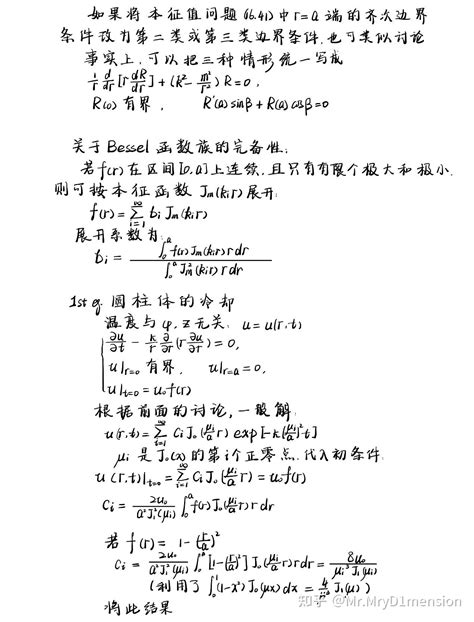 如果将本征值问题 (16.41) 中 r=a 端的齐次边界
条件改为第二类或第三类边界条件，也可类似讨论
事实上，可以把三种情形统一写成
1/r d/dr [r dR/dr] + (k² - m²/r²) R = 0,
R(0) 有界,  R'(a) sinβ + R(a) cosβ = 0
关于 Bessel 函数族的完备性:
若 f(r) 在区间 [0,a] 上连续，且只有有限个极大和极小.
则可按本征函数 Jm(kir) 展开:
f(r) = ∑_{i=1}^{∞} bi Jm(kir)
展开系数为:
bi = ∫₀ᵃ f(r) Jm(kir) r dr / ∫₀ᵃ Jm²(kir) r dr
1st eg. 圆柱体的冷却
温度与 φ, z 无关: u = u(r,t)
∂u/∂t - κ/r ∂/∂r (r ∂u/∂r) = 0,
u|r=0 有界,  u|r=a = 0,
u|t=0 = u₀f(r)
根据前面的讨论, 一般解:
u(r,t) = ∑_{i=1}^{∞} Ci J₀(μi/a r) exp[-κ(μi/a)² t]
μi 是 J₀(x) 的第 i 个正零点. 代入初条件:
u(r,t)|t=0 = ∑_{i=1}^{∞} Ci J₀(μi/a r) = u₀f(r)
Ci = 2u₀ / a²J₁²(μi) ∫₀ᵃ f(r) J₀(μi/a r) r dr
若 f(r) = 1 - (r/a)²
Ci = 2u₀ / a²J₁²(μi) ∫₀ᵃ [1-(r/a)²] J₀(μi/a r) r dr = 8u₀ / μi³J₁(μi)
(利用了 ∫₀¹ (1-x²) J₀(μx) dx = 4/μ³ J₁(μ))
将此结果
知乎 @Mr.MryD1mension